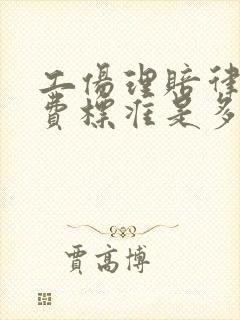 工傷理賠律
費標准是多
賈高博